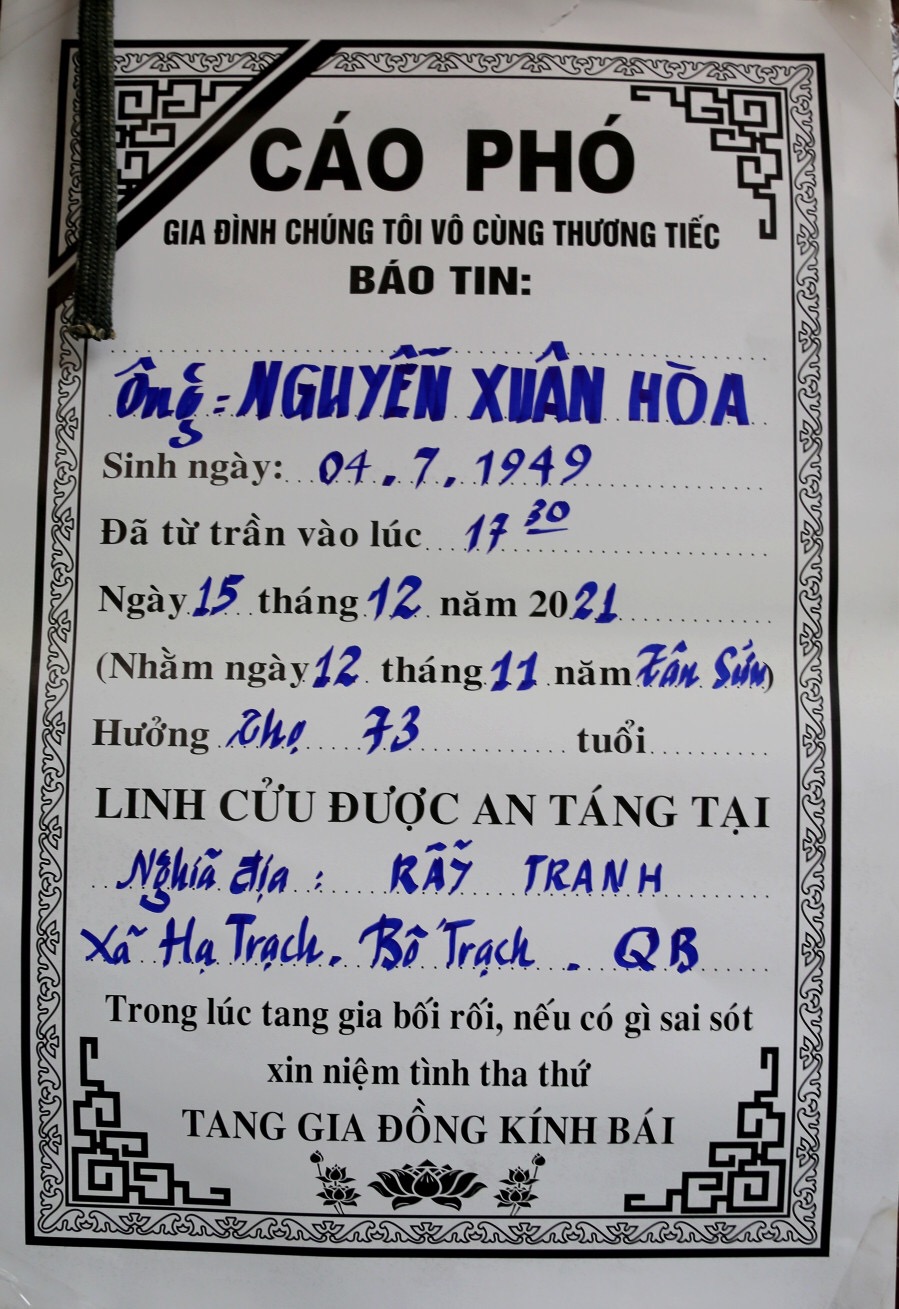 CÁO PHÓ
GIA ĐÌNH CHÚNG TÔI VÔ CÙNG THƯƠNG TIẾC
BÁO TIN:
Ông: NGUYỄN XUÂN HÒA
Sinh ngày: 04.7.1949
Đã từ trần vào lúc 17 30
Ngày 15 tháng 12 năm 2021
(Nhằm ngày 12 tháng 11 năm Tân Sửu)
Hưởng thọ 73 tuổi
LINH CỬU ĐƯỢC AN TÁNG TẠI
Nghĩa địa: RẪY TRANH
Xã Hạ Trạch. Bố Trạch. QB
Trong lúc tang gia bối rối, nếu có gì sai sót
xin niệm tình tha thứ
TANG GIA ĐỒNG KÍNH BÁI